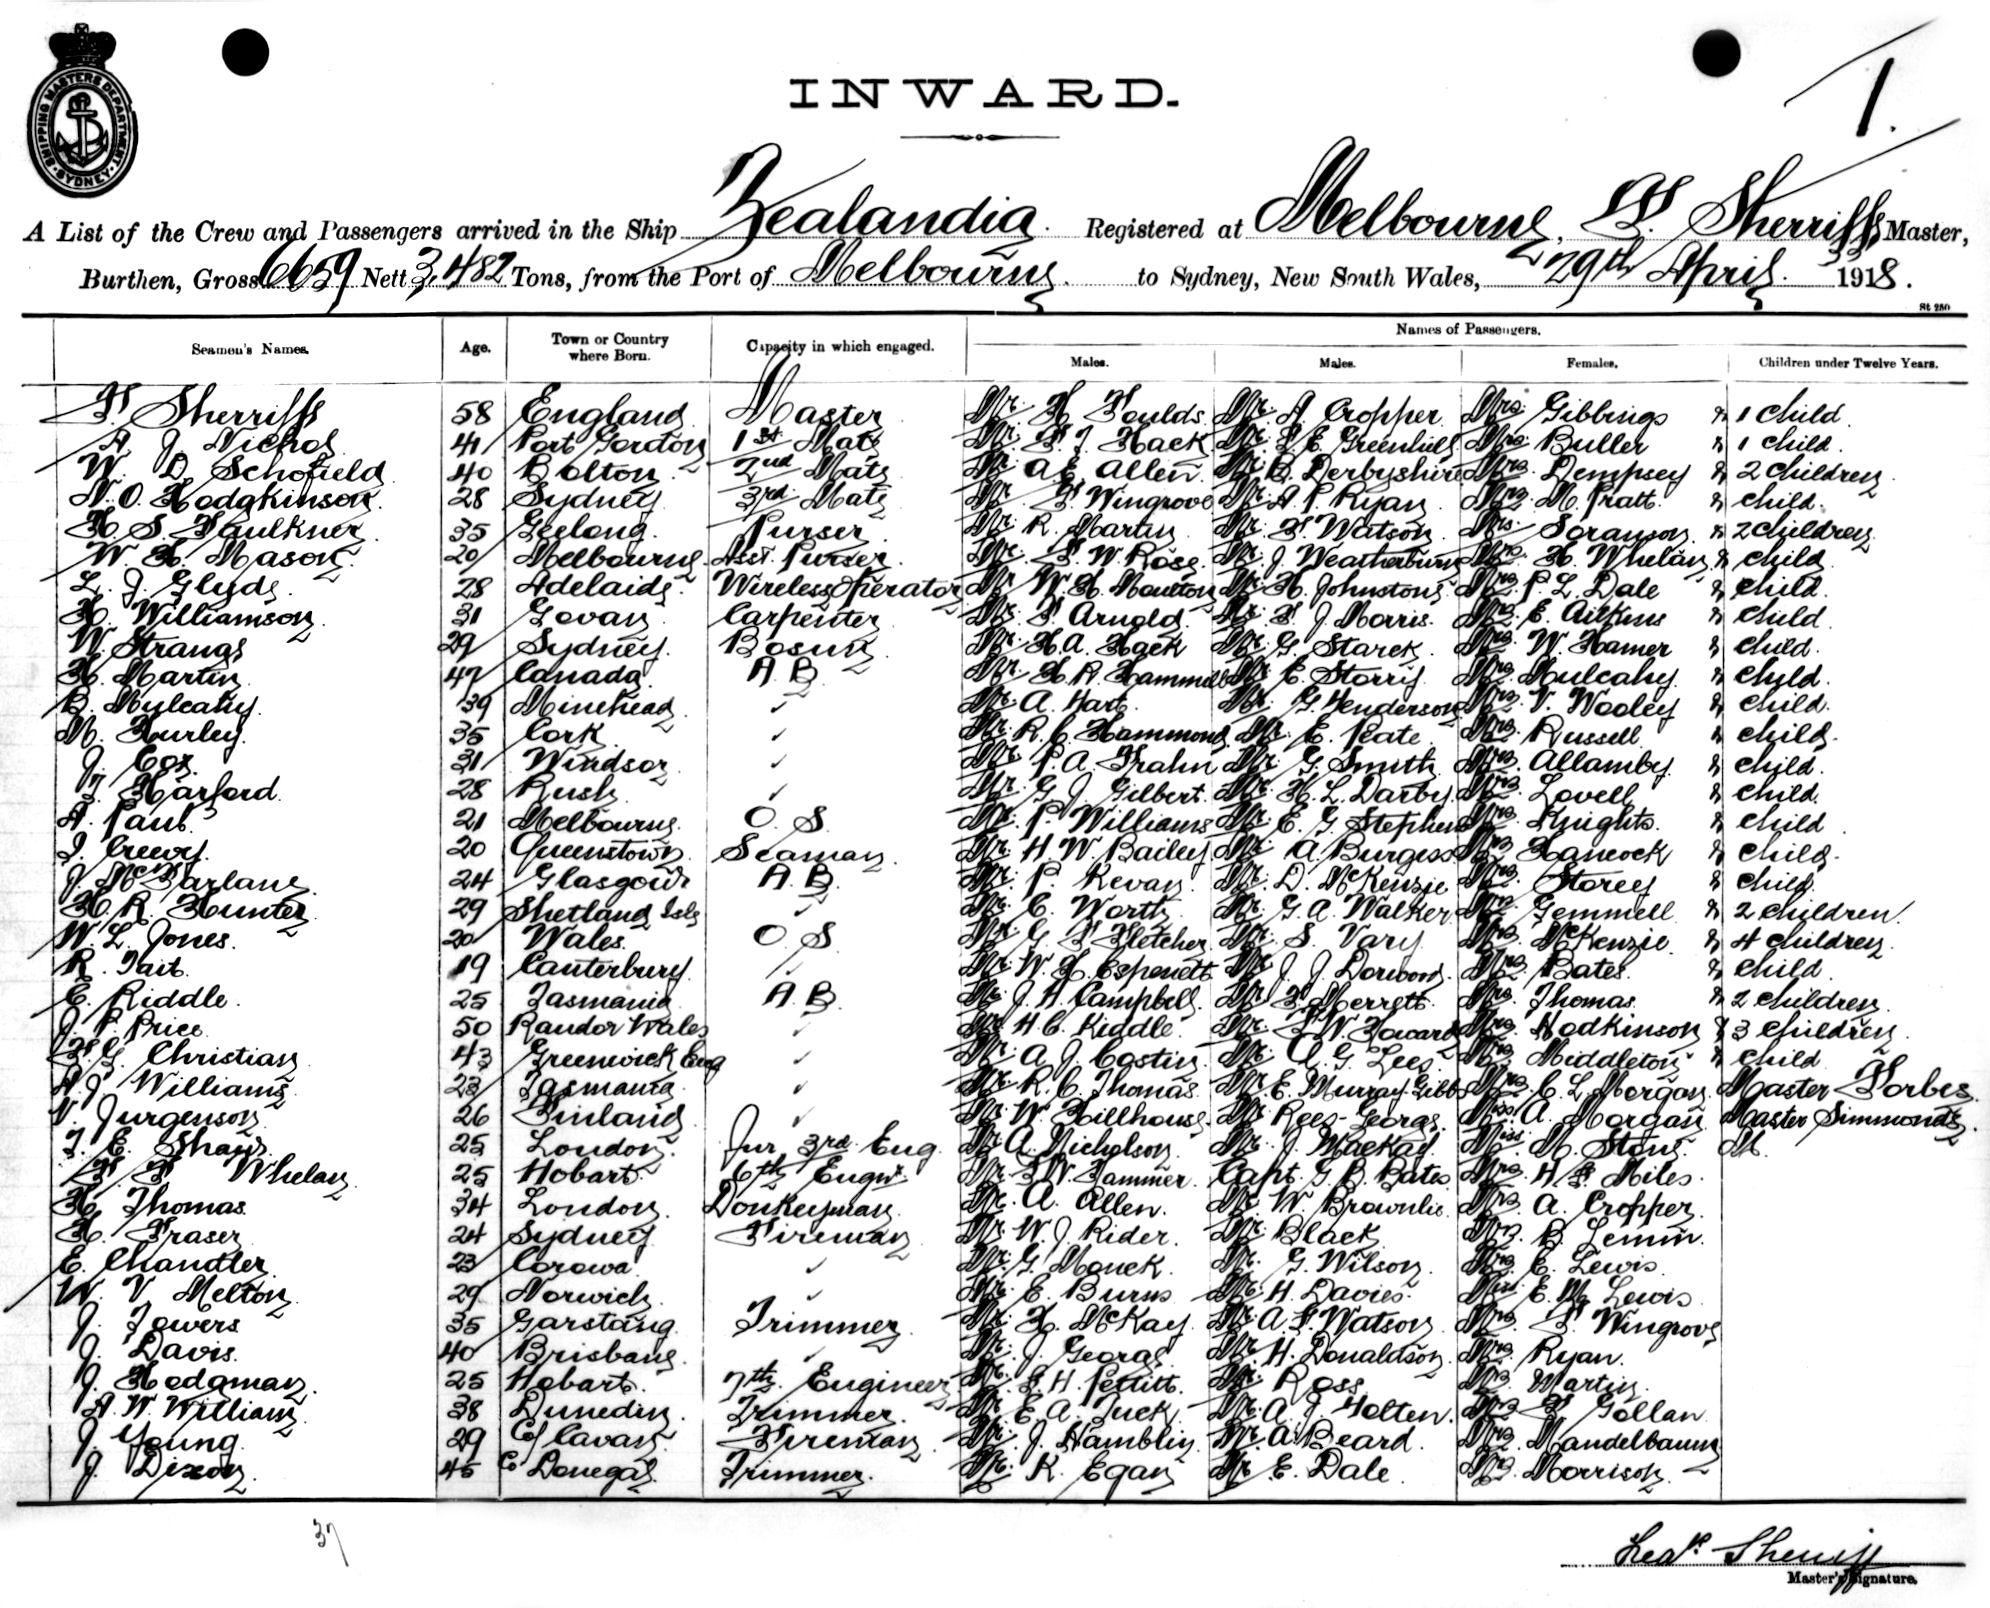 SHIPPING MASTERS DEPARTMENT
SYDNEY
INWARD.
1.
A List of the Crew and Passengers arrived in the Ship Zealandia. Registered at Melbourne, F. Sherriffs Master,
Burthen, Gross 6659 Nett 3,482 Tons, from the Port of Melbourne. to Sydney, New South Wales, 29th April. 1918.
St 250
Names of Passengers.
Seamen's Names. Age. Town or Country where Born. Capacity in which engaged. Males. Males. Females. Children under Twelve Years.
F. Sherriffs 58 England Master Mr. H. Foulds Mr. A. Cropper Mrs. Gibbings & 1 child
A. J. Nichol 41 Port Gordon 1st Mate Mr. F. J. Hack Mr. L. E. Greenhill Mrs Buller & 1 child.
W. D. Schofield 40 Bolton 2nd Mate Mr A. E. Allen Mr. B. Derbyshire Mrs. Dempsey & 2 children
N. O. Hodgkinson. 28 Sydney 3rd Mate Mr F. Wingrove Mr. A. P. Ryan Mrs. M. Pratt. & child.
H. S. Faulkner 35 Geelong. Purser. Mr. R. Martin Mr. F. Watson. Mrs. Soranson. & 2 children
W. H. Mason. 20 Melbourne Asst. Purser Mr. F. W. Rose. Mr. J. Weatherburn Mrs. H. Whelan & child
L. J. Glyde. 28 Adelaide. Wireless Operator Mr W. H. Moulton Mr. H. Johnstone Mrs. P. L. Dale & child.
H. Williamson. 31 Govan Carpenter Mr. F. Arnold. Mr. F. J. Morris. Mrs E. Aitkens & child.
W. Strange 29 Sydney. Bosun Mr. H. A. Hack Mr. G. Starck. Mrs. W. Hamer & child.
H. Martin. 47 Canada. A B. Mr. H. R. Hammill Mr. E. Storriy. Mrs Mulcahy. & child.
B. Mulcahy. 39 Minehead. ✓ Mr. A. Hart. Mr. G. Henderson Mrs. V. Wooley & child.
M. Hurley. 35 Cork. ✓ Mr. R. C. Hammond Mr. E. Peate. Mrs. Russell & child.
J. Cox. 31 Windsor ✓ Mr. P. A. Frahn Mr. G. Smith. Mrs. Allamby. & child.
J. Harford. 28 Rush. ✓ Mr. G. J. Gilbert. Mr. H. L. Darby. Mrs. Lovell & child.
A. Paul. 21 Melbourne. O. S. Mr. P. Williams Mr. E. G. Stephens Mrs. Knights. & child
20 Queenstown Seaman. Mr. H. W. Bailey Mr. A. Burgess Mrs Hancock & child.
J. McFarlane. 24 Glasgow A. B. Mr. P. Kevan. Mr. D. McKenzie Mrs. Storey & child.
H. R. Hunter 29 Shetland Isle ✓ Mr. C. Worth. Mr. G. A. Walker Mrs. Gemmell & 2 children.
W. L. Jones. 20 Wales. O. S Mr. G. F. Fletcher Mr. S. Vary Mrs. McKenzie & 4 children.
R. Tait. 19 Canterbury ✓ Mr. W. H. Espenett Mr. J. J. Dorwood. Mrs. Bates. & child.
E. Riddle. 25 Tasmania. A. B. Mr. J. H. Campbell Mr. F. Merrett. Mrs. Thomas. & 2 children
J. P. Price. 50 Randor Wales ✓ Mr. H. C. Kiddle Mr. F. W. Howard Mrs. Hodkinson & 3 children
F. G. Christian 43 Greenwick Eng ✓ Mr. A. J. Costin Mr. A. G. Lees. Mrs Middleton & child
A. J. Williams 23 Tasmania. ✓ Mr. R. C. Thomas. Mr. E. Murray Gibbs Mrs. C. L. Morgan Master Forbes.
V. Jurgenson 26 Finland ✓ Mr. W. Hillhouse. Mr Rees-George. Miss A. Morgan Master Simmonds.
T. E. Shaw. 25 London. Jnr. 3rd. Eng. Mr A. Nicholson. Mr. J. Mackay Miss. M. Stone. M.
F. F. Whelan 25 Hobart. 6th Engr. Mr. F. W. Hammer. Capt. G. B. Bates Mrs. H. S. Miles.
H. Thomas. 34 London. Donkeyman. Mr. A. Allen. Mr. W. Brownlie. Mrs. A. Cropper.
H. Fraser. 24 Sydney Fireman Mr. W. J. Rider. Mr. Black Mrs. B. Lemm.
E. Chandler 23 Corowa. ✓ Mr. G. Monek. Mr. G. Wilson. Mrs. C. Lewis.
W. V. Melton. 29 Norwich. ✓ Mr. E. Burns Mr. H. Davies. Miss E. M. Lewis
J. Towers 35 Garstang. Trimmer. Mr. H. McKay. Mr. A. F. Watson. Mrs. F. Wingrove
J. Davis. 40 Brisbane. ✓ Mr. J. George. Mr. H. Donaldson. Mrs. Ryan.
J. Hodgman. 25 Hobart. 7th. Engineer Mr. F. H. Pettitt. Mr. Ross Mrs. Martin.
A. W. William 38 Dunedin. Trimmer. Mr. E. A. Tuck. Mr. A. J. Holten. Mrs F. Gollan
J. Young. 29 C/ Cavan. Fireman Mr. J. Hamblin. Mr. A. Beard. Mrs. Mandelbaum
J. Dixon. 45 C. Donegal. Trimmer. Mr. K. Egan Mr E. Dale. Mrs. Morrison.
37
Master's Signature.